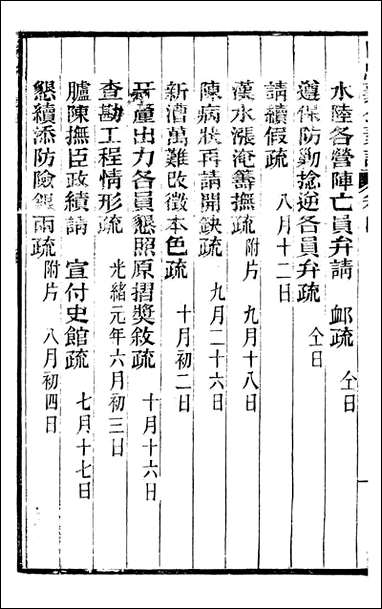 水陸各營陣亡員弁請　卹疏　仝日
遵保防勦捻逆各員弁疏　仝日
請續假疏　八月十二日
漢水漲淹籌撫疏　附片　九月十八日
陳病狀再請開缺疏　九月二十六日
新漕萬難改徵本色疏　十月初二日
童出力各員懇照原摺獎敘疏　十月十六日
查勘工程情形疏　光緒元年六月初三日
臚陳撫臣政績請　宣付史館疏　七月十七日
懇續添防險銀兩疏　附片　八月初四日